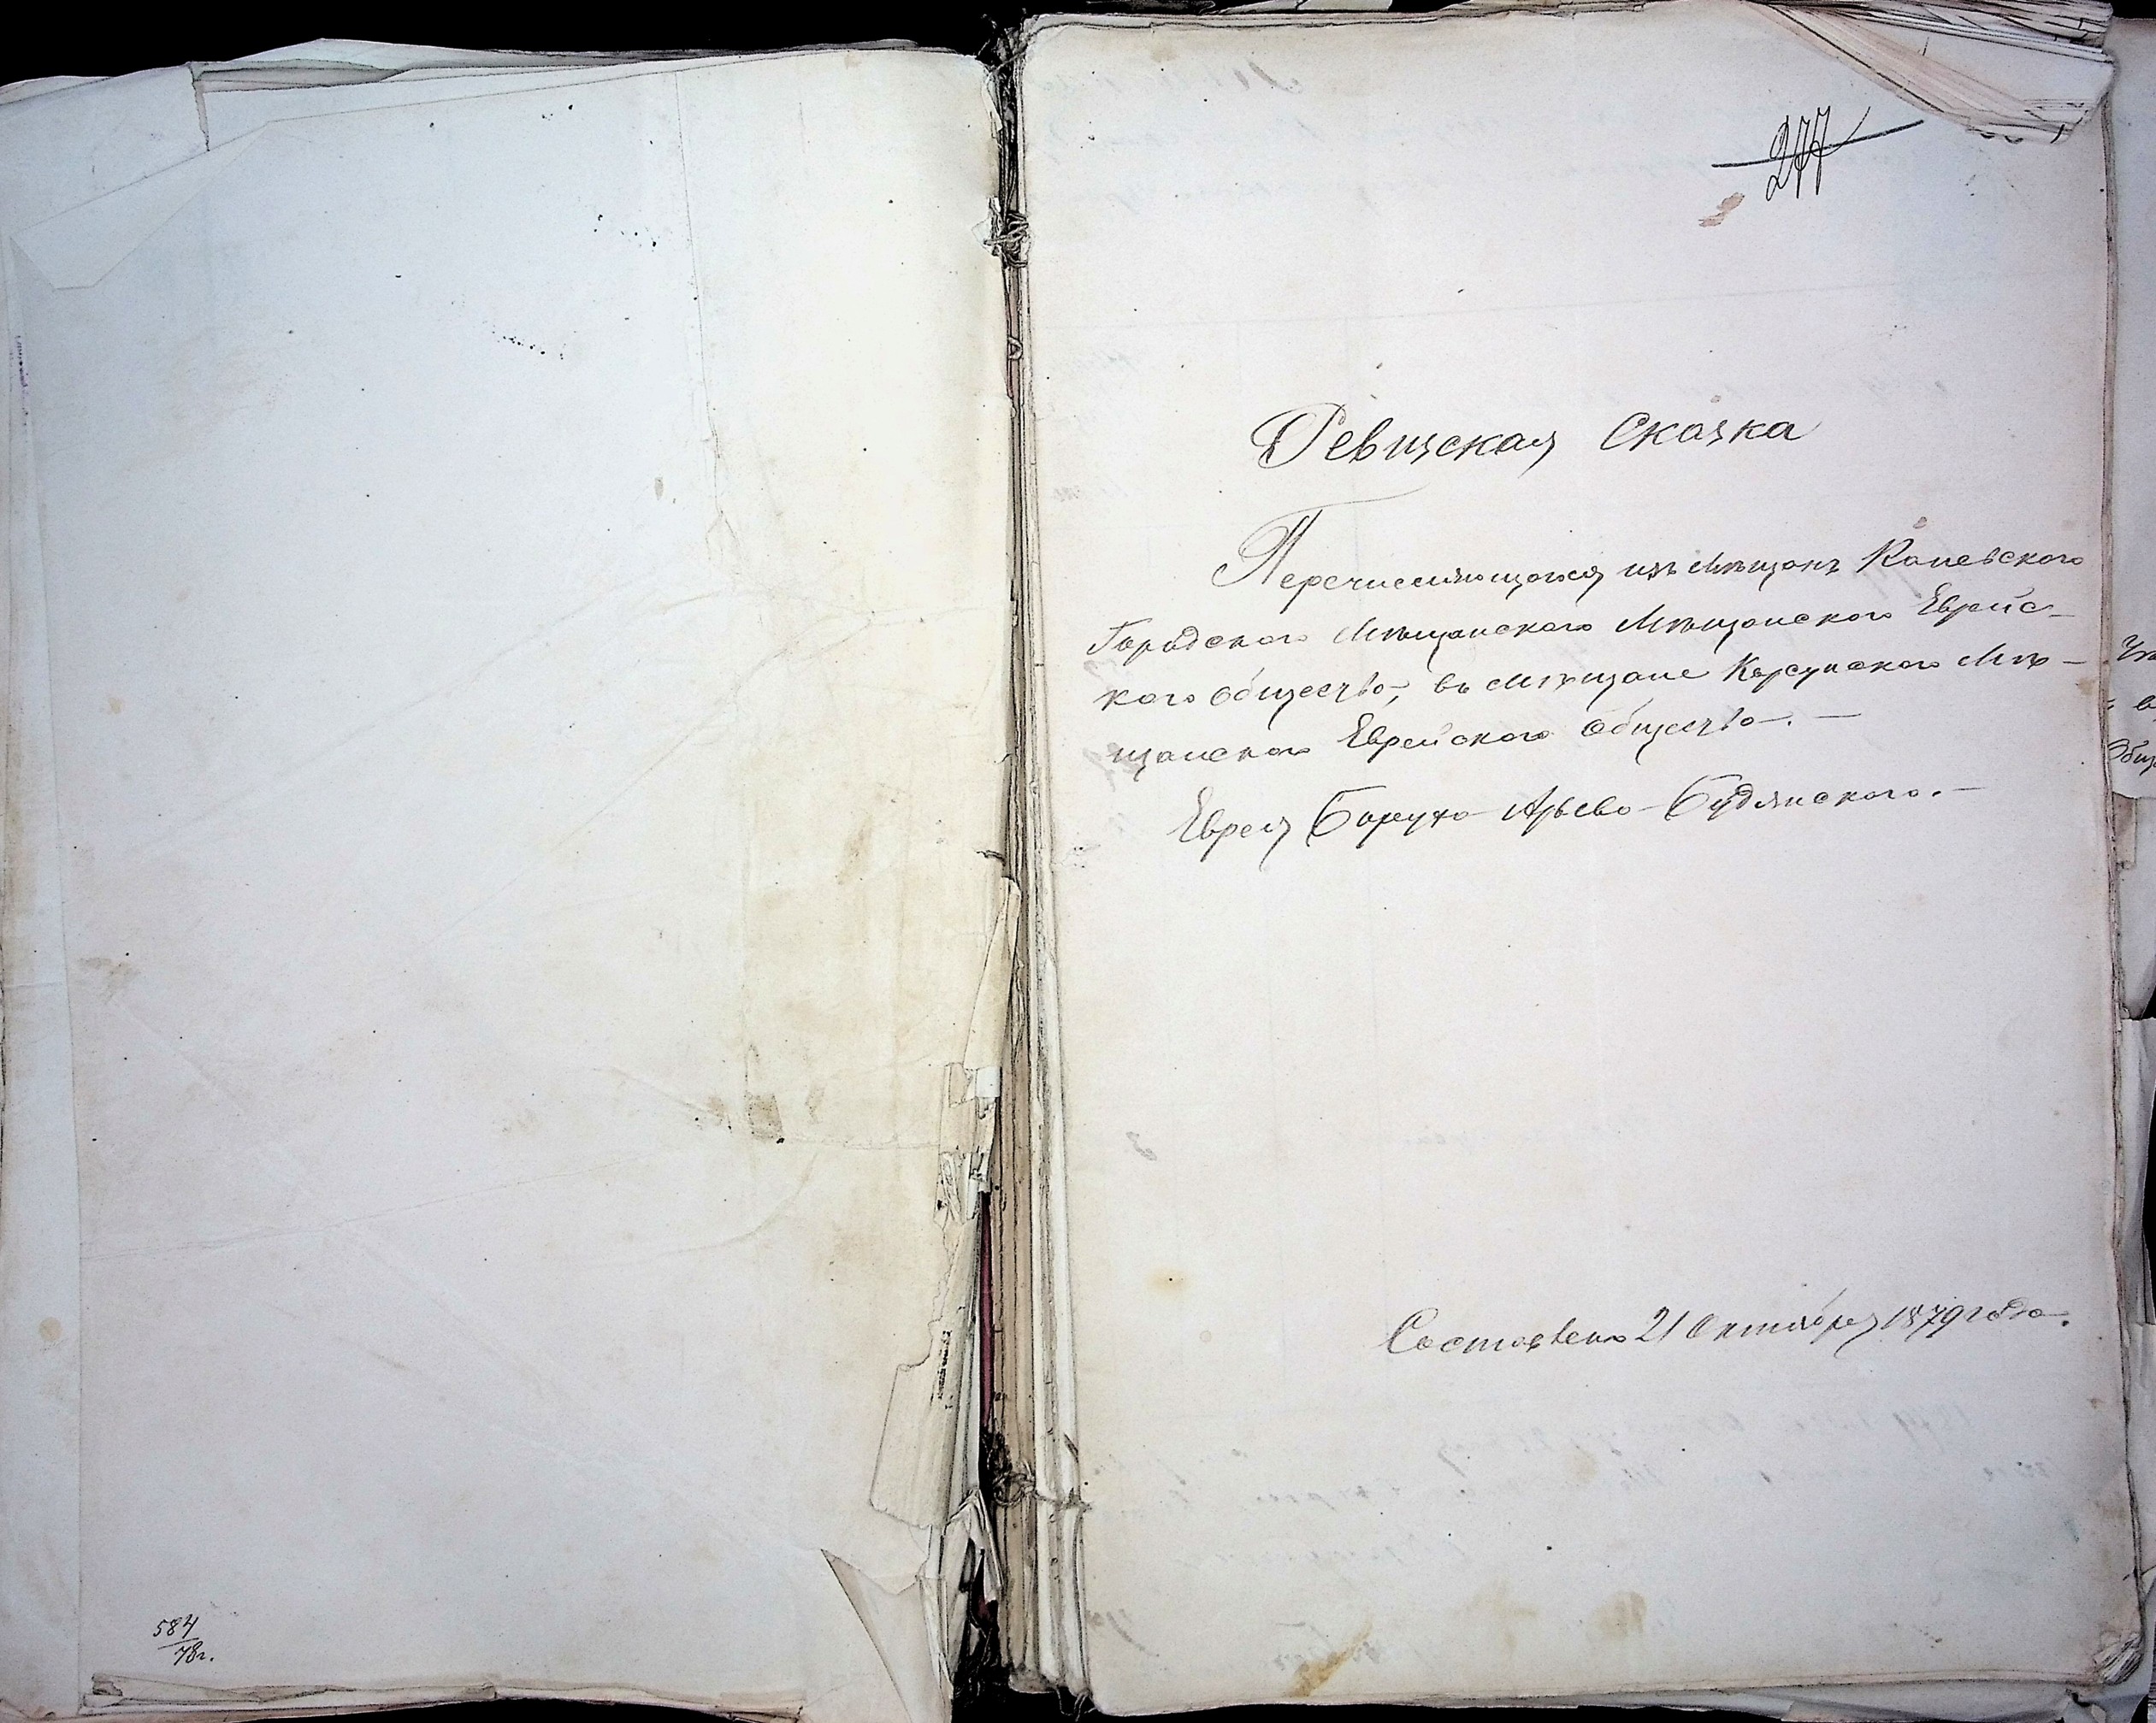 584
78г.
277
Ревизская Сказка
Перечисляющагося изъ мѣщанъ Каневского
Городского Мѣщанского Мѣщанского Еврейс-
кого общества, въ мѣщане Корсунского Мѣ-
щанского Еврейского Общества.-
Еврея Боруха Арьева Будянского.-
Составлена 21 Октября 1879 года.